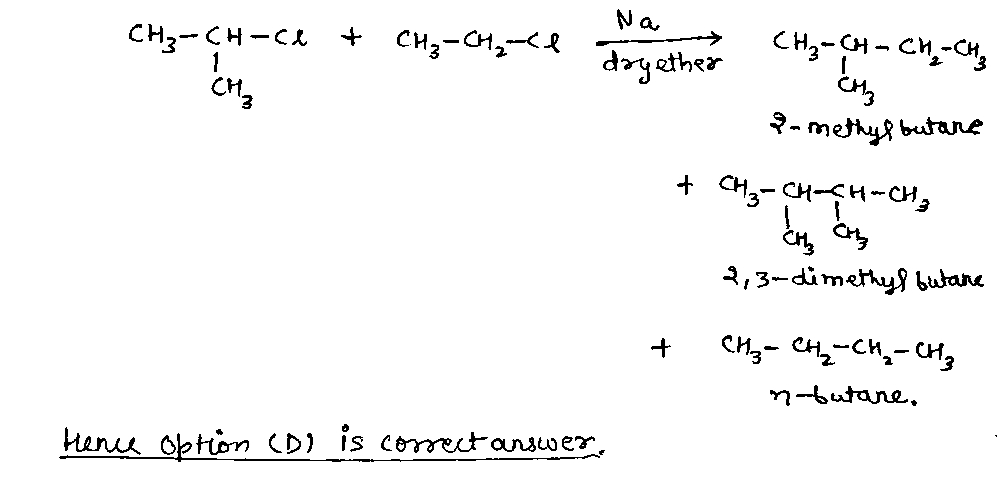 CH3-CH-Cl + CH3-CH2-Cl Na CH3-CH-CH2-CH3
CH3 dry ether CH3
2-methyl butane
+ CH3-CH-CH-CH3
CH3 CH3
2,3-dimethyl butane
+ CH3-CH2-CH2-CH3
n-butane.
Hence option (D) is correct answer.